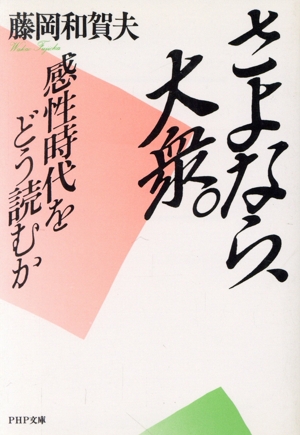 藤岡和賀夫
Wakao Fujioka
さよなら、
大衆。
感性時代を
どう読むか
PHP文庫